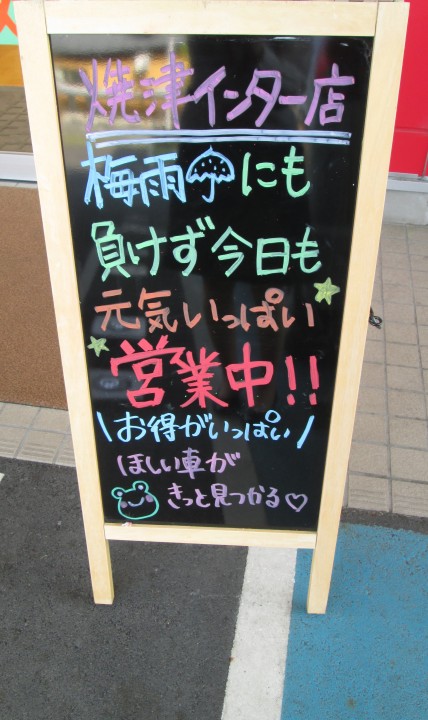 焼津インター店
梅雨☂にも
負けず今日も
元気いっぱい
営業中!!
\お得がいっぱい/
ほしい車が
きっと見つかる♡